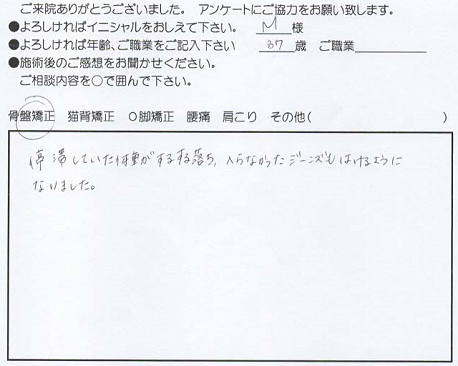 ご来院ありがとうございました。 アンケートにご協力をお願い致します。
●よろしければイニシャルをおしえて下さい。 M 様
●よろしければ年齢、ご職業をご記入下さい 37 歳 ご職業
●施術後のご感想をお聞かせください。
ご相談内容を○で囲んで下さい。
骨盤矯正 猫背矯正 O脚矯正 腰痛 肩こり その他( )
停滞していた体重がするする落ち、入らなかったジーンズもはけるように
なりました。